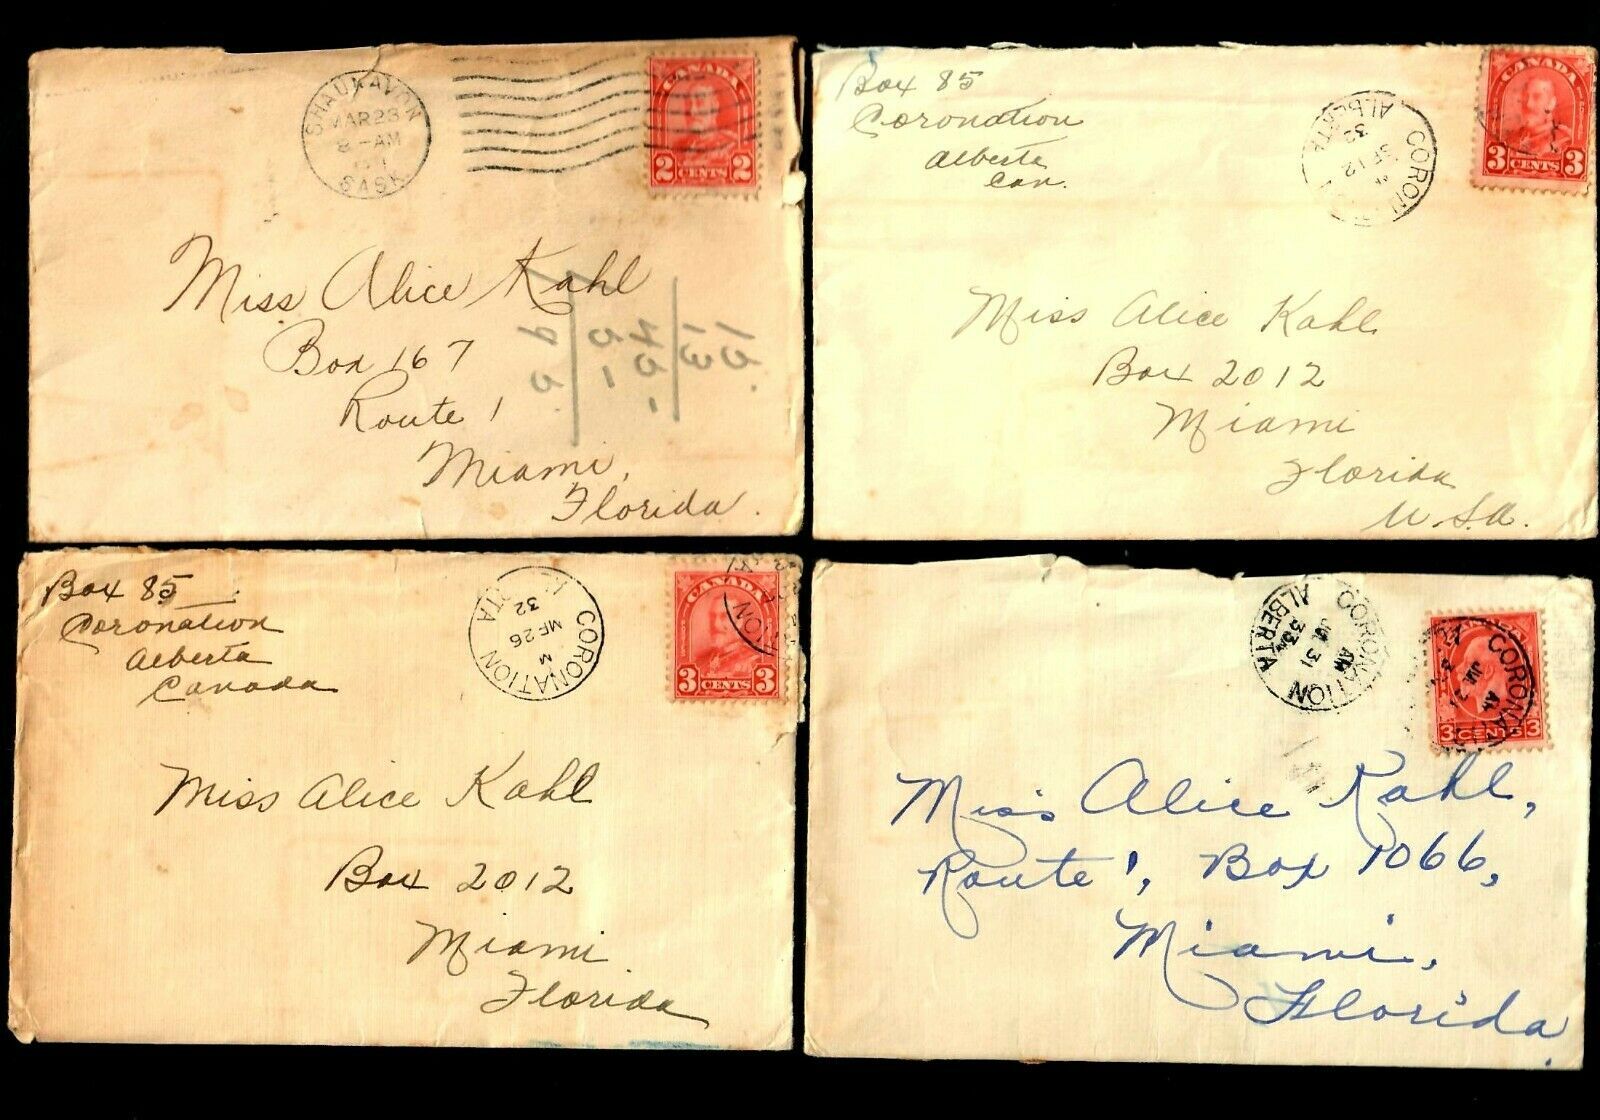 SHAUNAVON
MAR 23
8 - AM
SASK
CANADA
2 CENTS 2
Miss Alice Kahl
Box 167
Route 1
Miami,
Florida.
Box 85
Coronation
Alberta
Can.
CORON
ALBERTA
SP 12
32
CANADA
3 CENTS 3
Miss Alice Kahl
Box 2012
Miami
Florida
U.S.A.
Box 85
Coronation
Alberta
Canada
CORONATION
M
26
32
CANADA
3 CENTS 3
Miss Alice Kahl
Box 2012
Miami
Florida
CORONATION
AM
31
33
ALBERTA
CORONAT
3 CENTS 3
Miss Alice Kahl,
Route 1, Box 1066,
Miami,
Florida